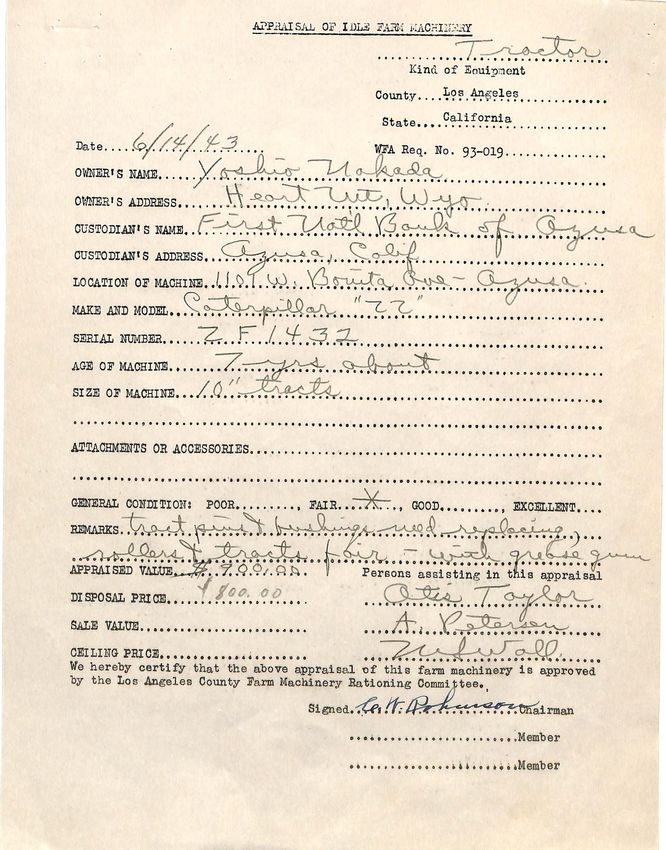 APPRAISAL OF IDLE FARM MACHINERY
Tractor
Kind of Equipment
County...Los Angeles
State....California
Date....6/14/43....
WFA Req. No. 93-019
OWNER'S NAME...Yoshio Nakada
OWNER'S ADDRESS...Heart Mt, Wyo.
CUSTODIAN'S NAME...First Nat'l Bank of Azusa
CUSTODIAN'S ADDRESS...Azusa, Calif
LOCATION OF MACHINE...1101 W. Bonita Ave - Azusa.
MAKE AND MODEL...Caterpillar "22"
SERIAL NUMBER...2F1432
AGE OF MACHINE...7 yrs about
SIZE OF MACHINE...10" tracts
ATTACHMENTS OR ACCESSORIES
GENERAL CONDITION: POOR........, FAIR...X..., GOOD........, EXCELLENT....
REMARKS..tract pins & bushings need replacing,
rollers & tracts fair - with grease gun
APPRAISED VALUE..$900.00
Persons assisting in this appraisal
DISPOSAL PRICE....$800.00
Otis Taylor
SALE VALUE
A. Petersen
CEILING PRICE
Wall
We hereby certify that the above appraisal of this farm machinery is approved
by the Los Angeles County Farm Machinery Rationing Committee.
Signed..C. W. Johnson Chairman
Member
Member